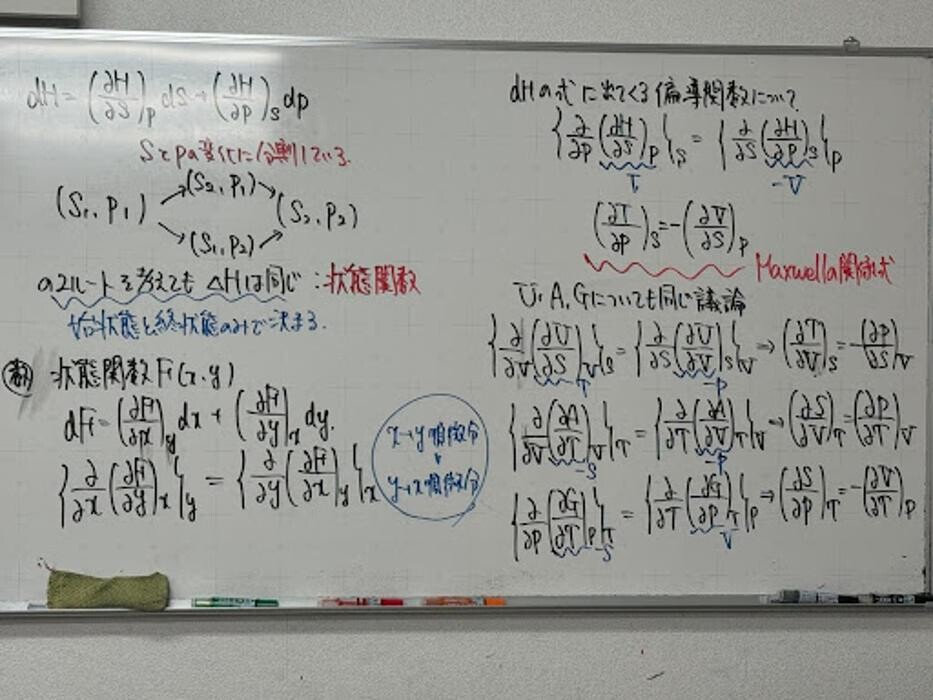 dH = (∂H/∂S)_P dS + (∂H/∂P)_S dp
SとPの変化に分割している.
(S₁, P₁) → (S₂, P₁) → (S₂, P₂)
(S₁, P₁) → (S₁, P₂) → (S₂, P₂)
の2ルートを考えても ΔHは同じ : 状態関数
始状態と終状態のみで決まる.
状態関数 F(x, y)
dF = (∂F/∂x)_y dx + (∂F/∂y)_x dy.
{∂/∂x (∂F/∂y)_x}_y = {∂/∂y (∂F/∂x)_y}_x
x→y 順微分
y→x 順微分
dHの式に出てくる偏導関数について
{∂/∂P (∂H/∂S)_P}_S = {∂/∂S (∂H/∂P)_S}_P
T
-V
(∂T/∂P)_S = -(∂V/∂S)_P
Maxwellの関係式
U, A, Gについても同じ議論
{∂/∂V (∂U/∂S)_V}_S = {∂/∂S (∂U/∂V)_S}_V → (∂T/∂V)_S = -(∂P/∂S)_V
T
-P
{∂/∂V (∂A/∂T)_V}_T = {∂/∂T (∂A/∂V)_T}_V → (∂S/∂V)_T = (∂P/∂T)_V
-S
-P
{∂/∂P (∂G/∂T)_P}_T = {∂/∂T (∂G/∂P)_T}_P → (∂S/∂P)_T = -(∂V/∂T)_P
-S
V